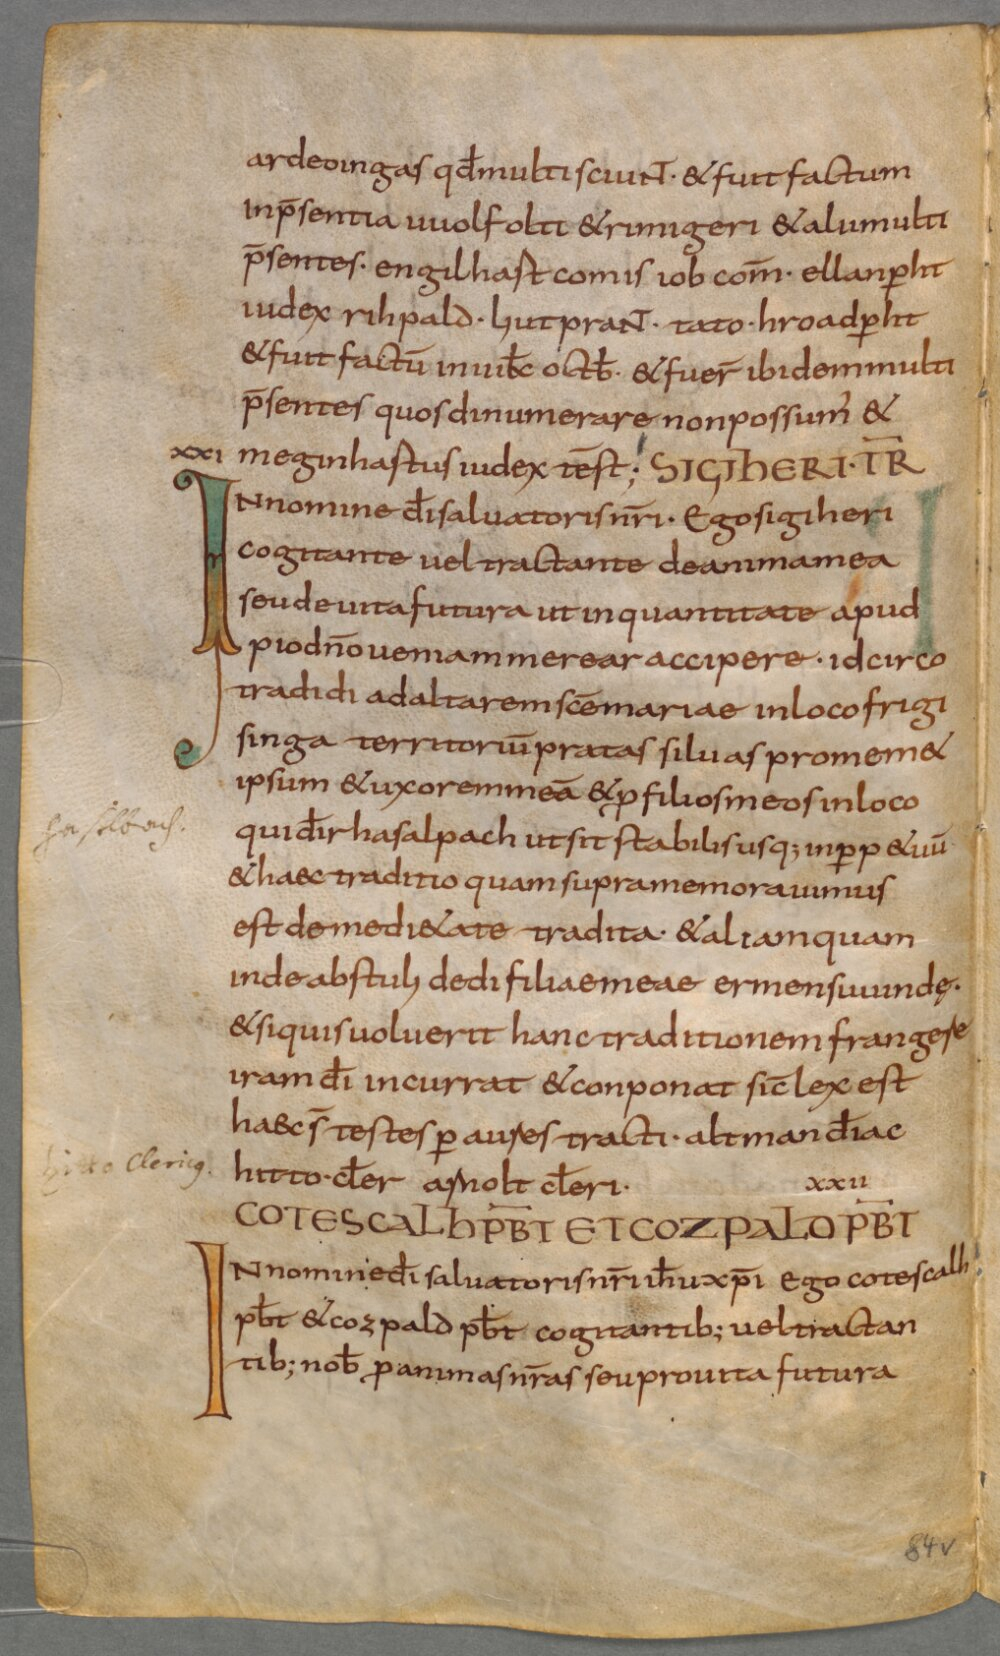 ardeoingas qđ multi sciuNT· & fuit factum
in p̄sentia uuolfolti & rimigeri & alii multi
p̄sentes· engilhast comis iob com̄· ellanꝑht
iudex rihpald· hutpraNT· tato· hroadꝑht
& fuit factū in uuiƀc octƀ· & fueř ibidem multi
p̄sentes quos dinumerare non possum̉ &
xxi meginhastus iudex tēst; SIGIHERI· T̄R
IN nomine dī saluatoris nr̄i· Ego sigiheri
cogitante uel tractante de anima mea
seu de uita futura ut in quantitate apud
pio dn̄o ueniam merear accipere· idcirco
tradidi ad altarem sc̄e mariae in loco frigi
singa territoriū pratas siluas pro mem&
ipsum & uxorem meā & ꝓ filios meos in loco
qui dīr hasalpach ut sit stabilis usq; in ꝑp&uū
haslbach.
& haec traditio quam supra memorauimus
est de medi&ate tradita· & aliam quam
inde abstuli dedi filiae meae ermensuuindę·
& si quis uoluerit hanc traditionem frangere
iram dī incurrat & conponat sic̄ lex est
haec s̄ testes ꝑ aures tracti· altman điac
hitto Clericꝰ.
hitto· cƚer arnolt cƚeri· xxii
COTESCALH P̄BT ET COZPALD P̄BT
IN nomine dī saluatoris nr̄i iħu xp̄i Ego cotescalh
pƀt & cozpald pƀt cogitantib; uel tractan
tib; noƀ ꝓ animas nr̄as seu pro uita futura
84v